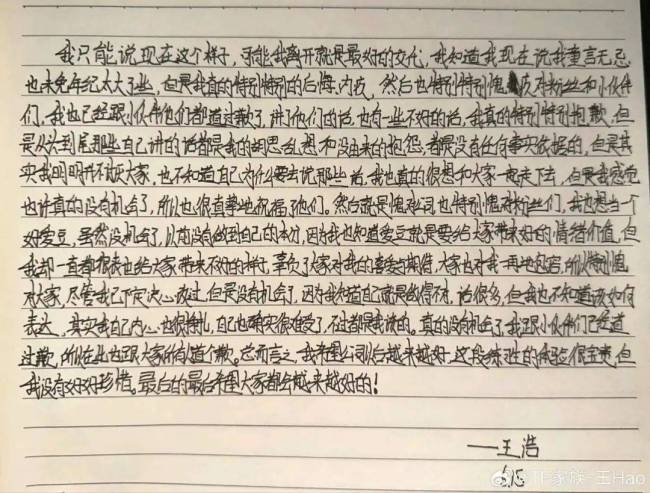 我只能说现在这个样子,可能我离开就是最好的交代,我知道我现在说我童言无忌
也未免年纪太大了些,但是我真的特别特别的后悔、内疚,然后也特别特别愧疚对粉丝和小伙伴
们,我也已经跟小伙伴他们都道过歉了,讲了他们的话,也有一些不好的话,我真的特别特别抱歉,但
是从头到尾那些自己讲的话都是我的胡思乱想和没由来的抱怨,都是没有任何事实依据的,但是其
实我明明并不讨厌大家,也不知道自己为什么要去说那些话,我也真的很想和大家一起走下去,但是我感觉
也许真的没有机会了,所以也很真挚地祝福了他们。然后就是愧对公司也特别愧对粉丝们,我也想当一个
好爱豆,虽然没机会了,以前没有做到自己的本分,因为我也知道爱豆就是要给大家带来好的情绪价值,但
我却一直都很丧也给大家带来不好的样子,辜负了大家对我的喜爱与期待,大家也对我一再地包容,所以特别愧
对大家,尽管我已下定决心改过,但是没有机会了,因为我知道自己就是做得不对,话很多,但我也不知道该如何
表达,其实我自己内心也很挣扎,自己也确实很难受了,不过都是我该的。真的没有机会了,我跟小伙伴们已经道
过歉,所以在此也跟大家所有道个歉。总而言之,我希望公司以后越来越好,这段练习生的体验很宝贵,但
我没有好好珍惜。最后的最后希望大家都会越来越好的!
——王浩
6.15
@TF家族-王Hao